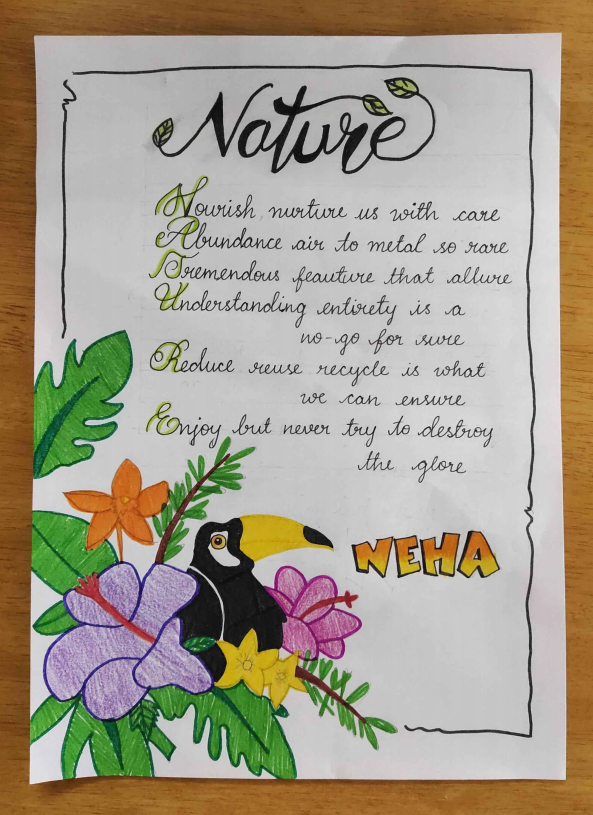 Nature
Nourish nurture us with care
Abundance air to metal so rare
Tremendous feauture that allure
Understanding entirety is a
no-go for sure
Reduce reuse recycle is what
we can ensure
Enjoy but never try to destroy
the glore
NEHA